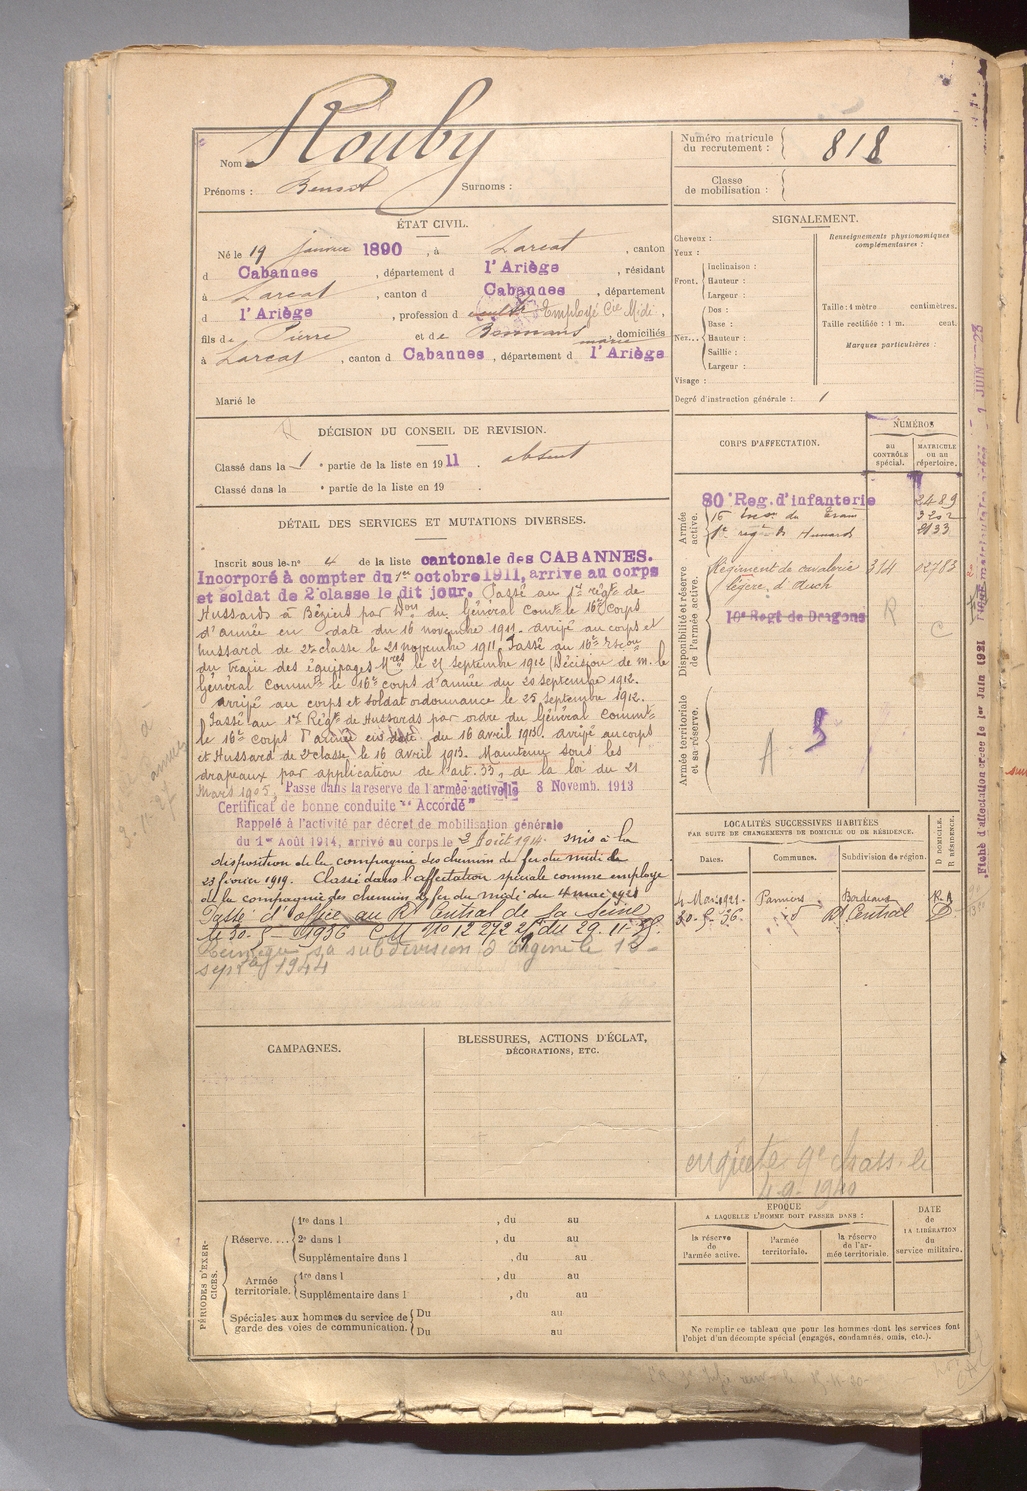 Nom Rouby
Prénoms : Benoit Surnoms :
Numéro matricule du recrutement : 818
Classe de mobilisation :
ÉTAT CIVIL.
Né le 19 janvier 1890, à Larcat, canton
d Cabannes, département d l'Ariège, résidant
à Larcat, canton d Cabannes, département
d l'Ariège, profession d Employé Cie Midi,
fils de Pierre et de marie, domiciliés
à Larcat, canton d Cabannes, département d l'Ariège
Marié le
SIGNALEMENT.
Cheveux :
Yeux :
Front. Inclinaison :
Hauteur :
Largeur :
Nez... Dos :
Base :
Hauteur :
Saillie :
Largeur :
Visage :
Renseignements physionomiques complémentaires :
Taille : 1 mètre centimètres.
Taille rectifiée : 1 m. cent.
Marques particulières :
Degré d'instruction générale : 1
DÉCISION DU CONSEIL DE REVISION.
Classé dans la 1 e partie de la liste en 1911. absent
Classé dans la e partie de la liste en 19 .
DÉTAIL DES SERVICES ET MUTATIONS DIVERSES.
Inscrit sous le n° 4 de la liste cantonale des CABANNES.
Incorporé à compter du 1er octobre 1911, arrivé au corps
et soldat de 2e classe le dit jour. Passé au 1er régt de
Hussards à Béziers par don du Général Comt le 16e corps
d'armée en date du 16 novembre 1911. arrivé au corps et
hussard de 2e classe le 21 novembre 1911. Passé au 16e Escon
du train des équipages Mres le 25 septembre 1912 (Décision de m. le
Général Commt le 16e corps d'armée du 20 septembre 1912.
arrivé au corps et soldat ordonnance le 25 septembre 1912.
Passé au 1er Régt de Hussards par ordre du Général Commt
le 16e Corps d'armée en date du 16 avril 1913. arrivé au corps
et Hussard de 2e classe le 16 avril 1913. Maintenu sous les
drapeaux par application de l'art. 33, de la loi du 21
Mars 1905. Passé dans la réserve de l'armée active le 8 Novemb. 1913
Certificat de bonne conduite "Accordé"
Rappelé à l'activité par décret de mobilisation générale
du 1er Août 1914, arrivé au corps le 3 Août 1914. mis à la
disposition de la compagnie des chemin de fer du midi le
23 février 1919. Classé dans l'affectation spéciale comme employé
de la compagnie des chemin de fer du midi du 4 mai 1921
Passé d'office au Rt Central de la Seine
le 30-5-1936
sa subdivision d'origine le 12
sept 1944
CORPS D'AFFECTATION.
NUMÉROS
AU CONTRÔLE spécial.
MATRICULE ou au répertoire.
Armée active.
80e Reg. d'infanterie 2489
16 du Train 3202
1er regt de Hussards 2133
Disponibilité et réserve de l'armée active.
Régiment de cavalerie légère d'Auch 314 02783
10e Regt de Dragons
R
C
Armée territoriale et sa réserve.
A
LOCALITÉS SUCCESSIVES HABITÉES
PAR SUITE DE CHANGEMENTS DE DOMICILE OU DE RÉSIDENCE.
Dates. Communes. Subdivision de région. D DOMICILE. R RÉSIDENCE.
4 Mai 1921. Pamiers Bordeaux R.
30-5-36. d° Rt Central D
enquête 9e chass. le
4-9-1940
CAMPAGNES.
BLESSURES, ACTIONS D'ÉCLAT, DÉCORATIONS, ETC.
PÉRIODES D'EXERCICES.
Réserve.... 1re dans l , du au
2e dans l , du au
Supplémentaire dans l , du au
Armée territoriale. 1re dans l , du au
Supplémentaire dans l , du au
Spéciales aux hommes du service de garde des voies de communication. Du au
Du au
ÉPOQUE
A LAQUELLE L'HOMME DOIT PASSER DANS :
la réserve de l'armée active.
l'armée territoriale.
la réserve de l'armée territoriale.
DATE de LA LIBÉRATION du service militaire.
Ne remplir ce tableau que pour les hommes dont les services font
l'objet d'un décompte spécial (engagés, condamnés, omis, etc.).